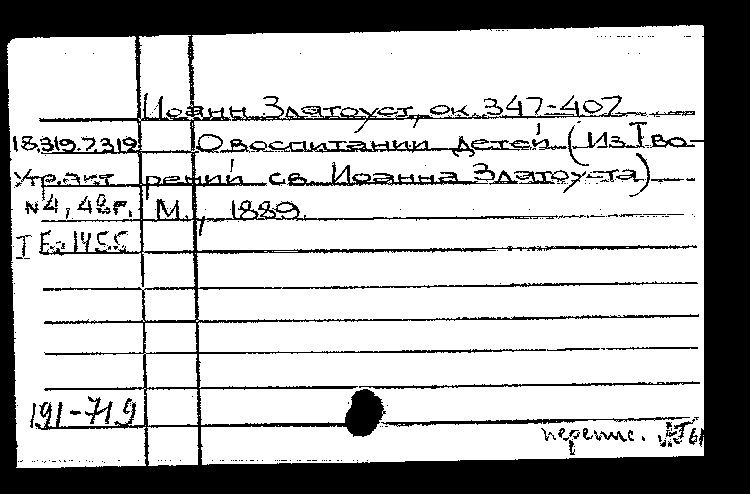 Иоанн Златоуст, ок. 347-407
18.319.7.319 О воспитании детей (Из Тво-
Утр. акт рений св. Иоанна Златоуста)
№4, 48г. М., 1889.
I Ев 1455
191-719
перепис.